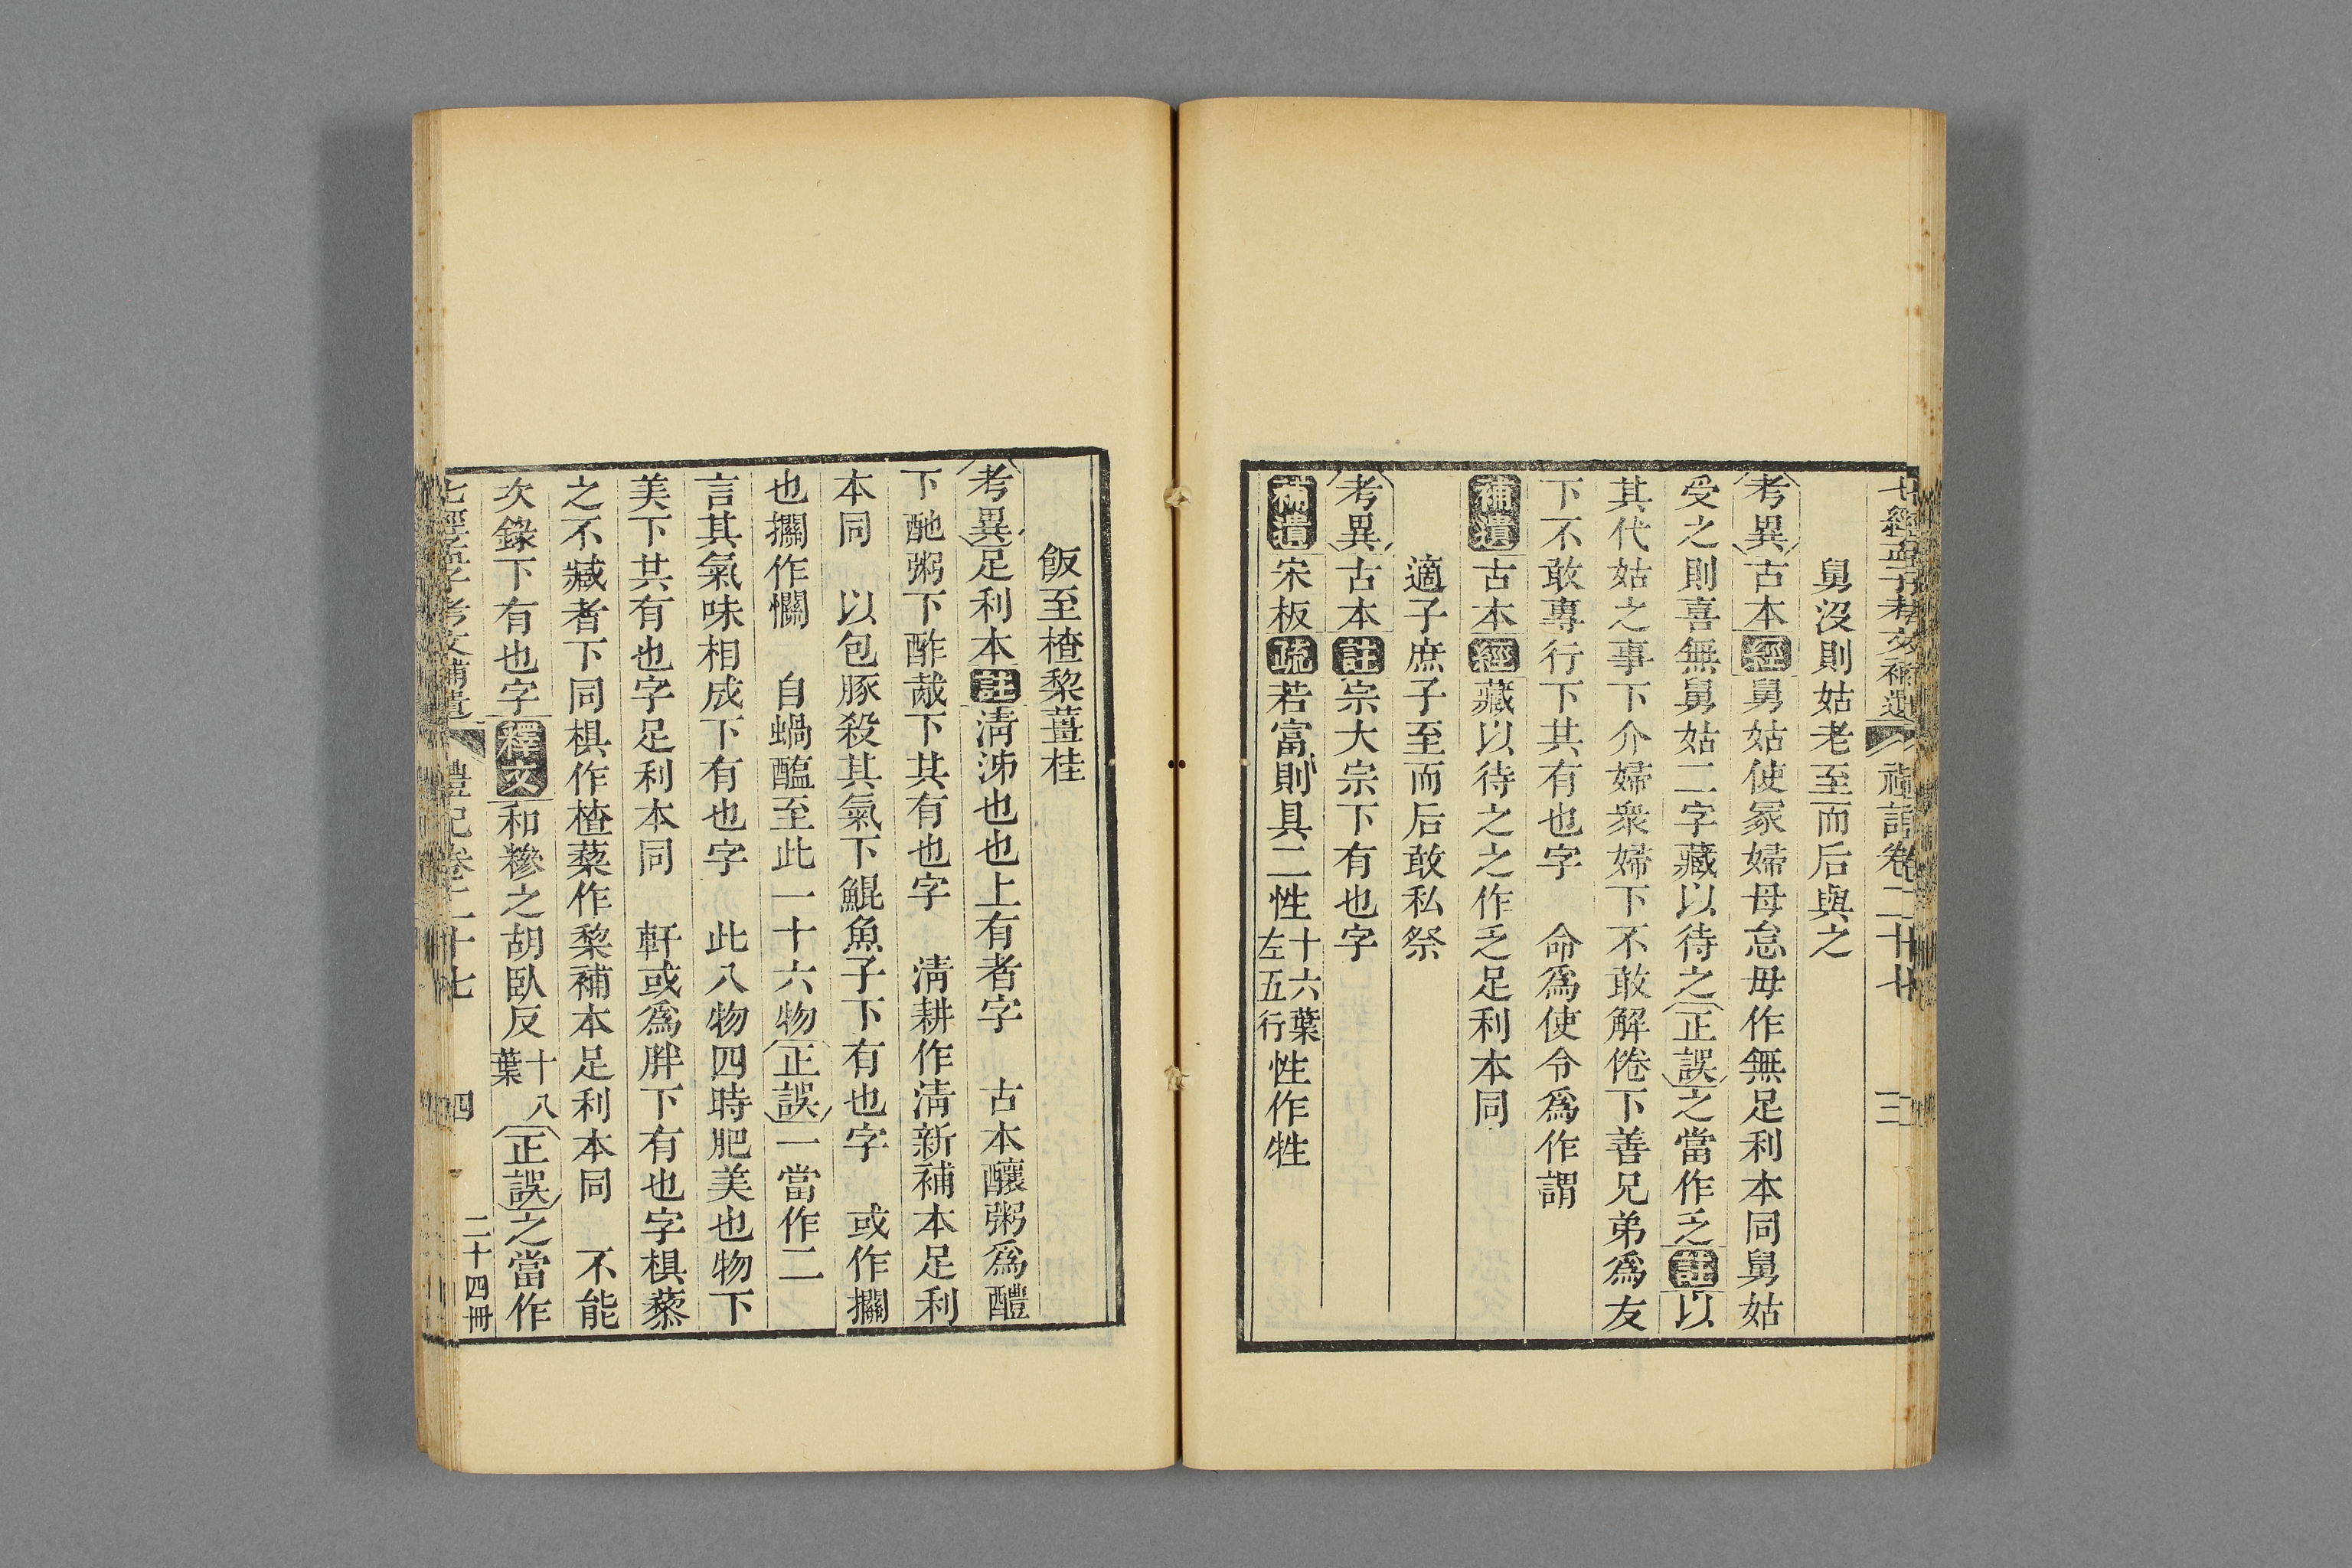 七經孟子考文補遺 禮記卷二十七 三
舅沒則姑老至而后與之
考異古本經舅姑使冢婦毋怠毋作無足利本同舅姑
受之則喜無舅姑二字藏以待之正誤之當作乏註以
其代姑之事下介婦衆婦下不敢解倦下善兄弟爲友
下不敢專行下其有也字 命爲使令爲作謂
補遺古本經藏以待之之作乏足利本同
適子庶子至而后敢私祭
考異古本註宗大宗下有也字
補遺宋板疏若富則具二性十六葉左五行性作牲
飯至楂棃薑桂
考異足利本註淸泲也也上有者字 古本釀粥爲醴
下酏粥下酢䣫下其有也字 淸耕作淸新補本足利
本同 以包豚殺其氣下鯤魚子下有也字 或作攔
也攔作欄 自蝸醢至此一十六物正誤一當作二
言其氣味相成下有也字 此八物四時肥美也物下
美下共有也字足利本同 軒或爲胖下有也字椇藜
之不臧者下同椇作楂蔾作棃補本足利本同 不能
次錄下有也字釋文和糝之胡臥反十八葉正誤之當作
七經孟子考文補遺 禮記卷二十七 四 二十四冊